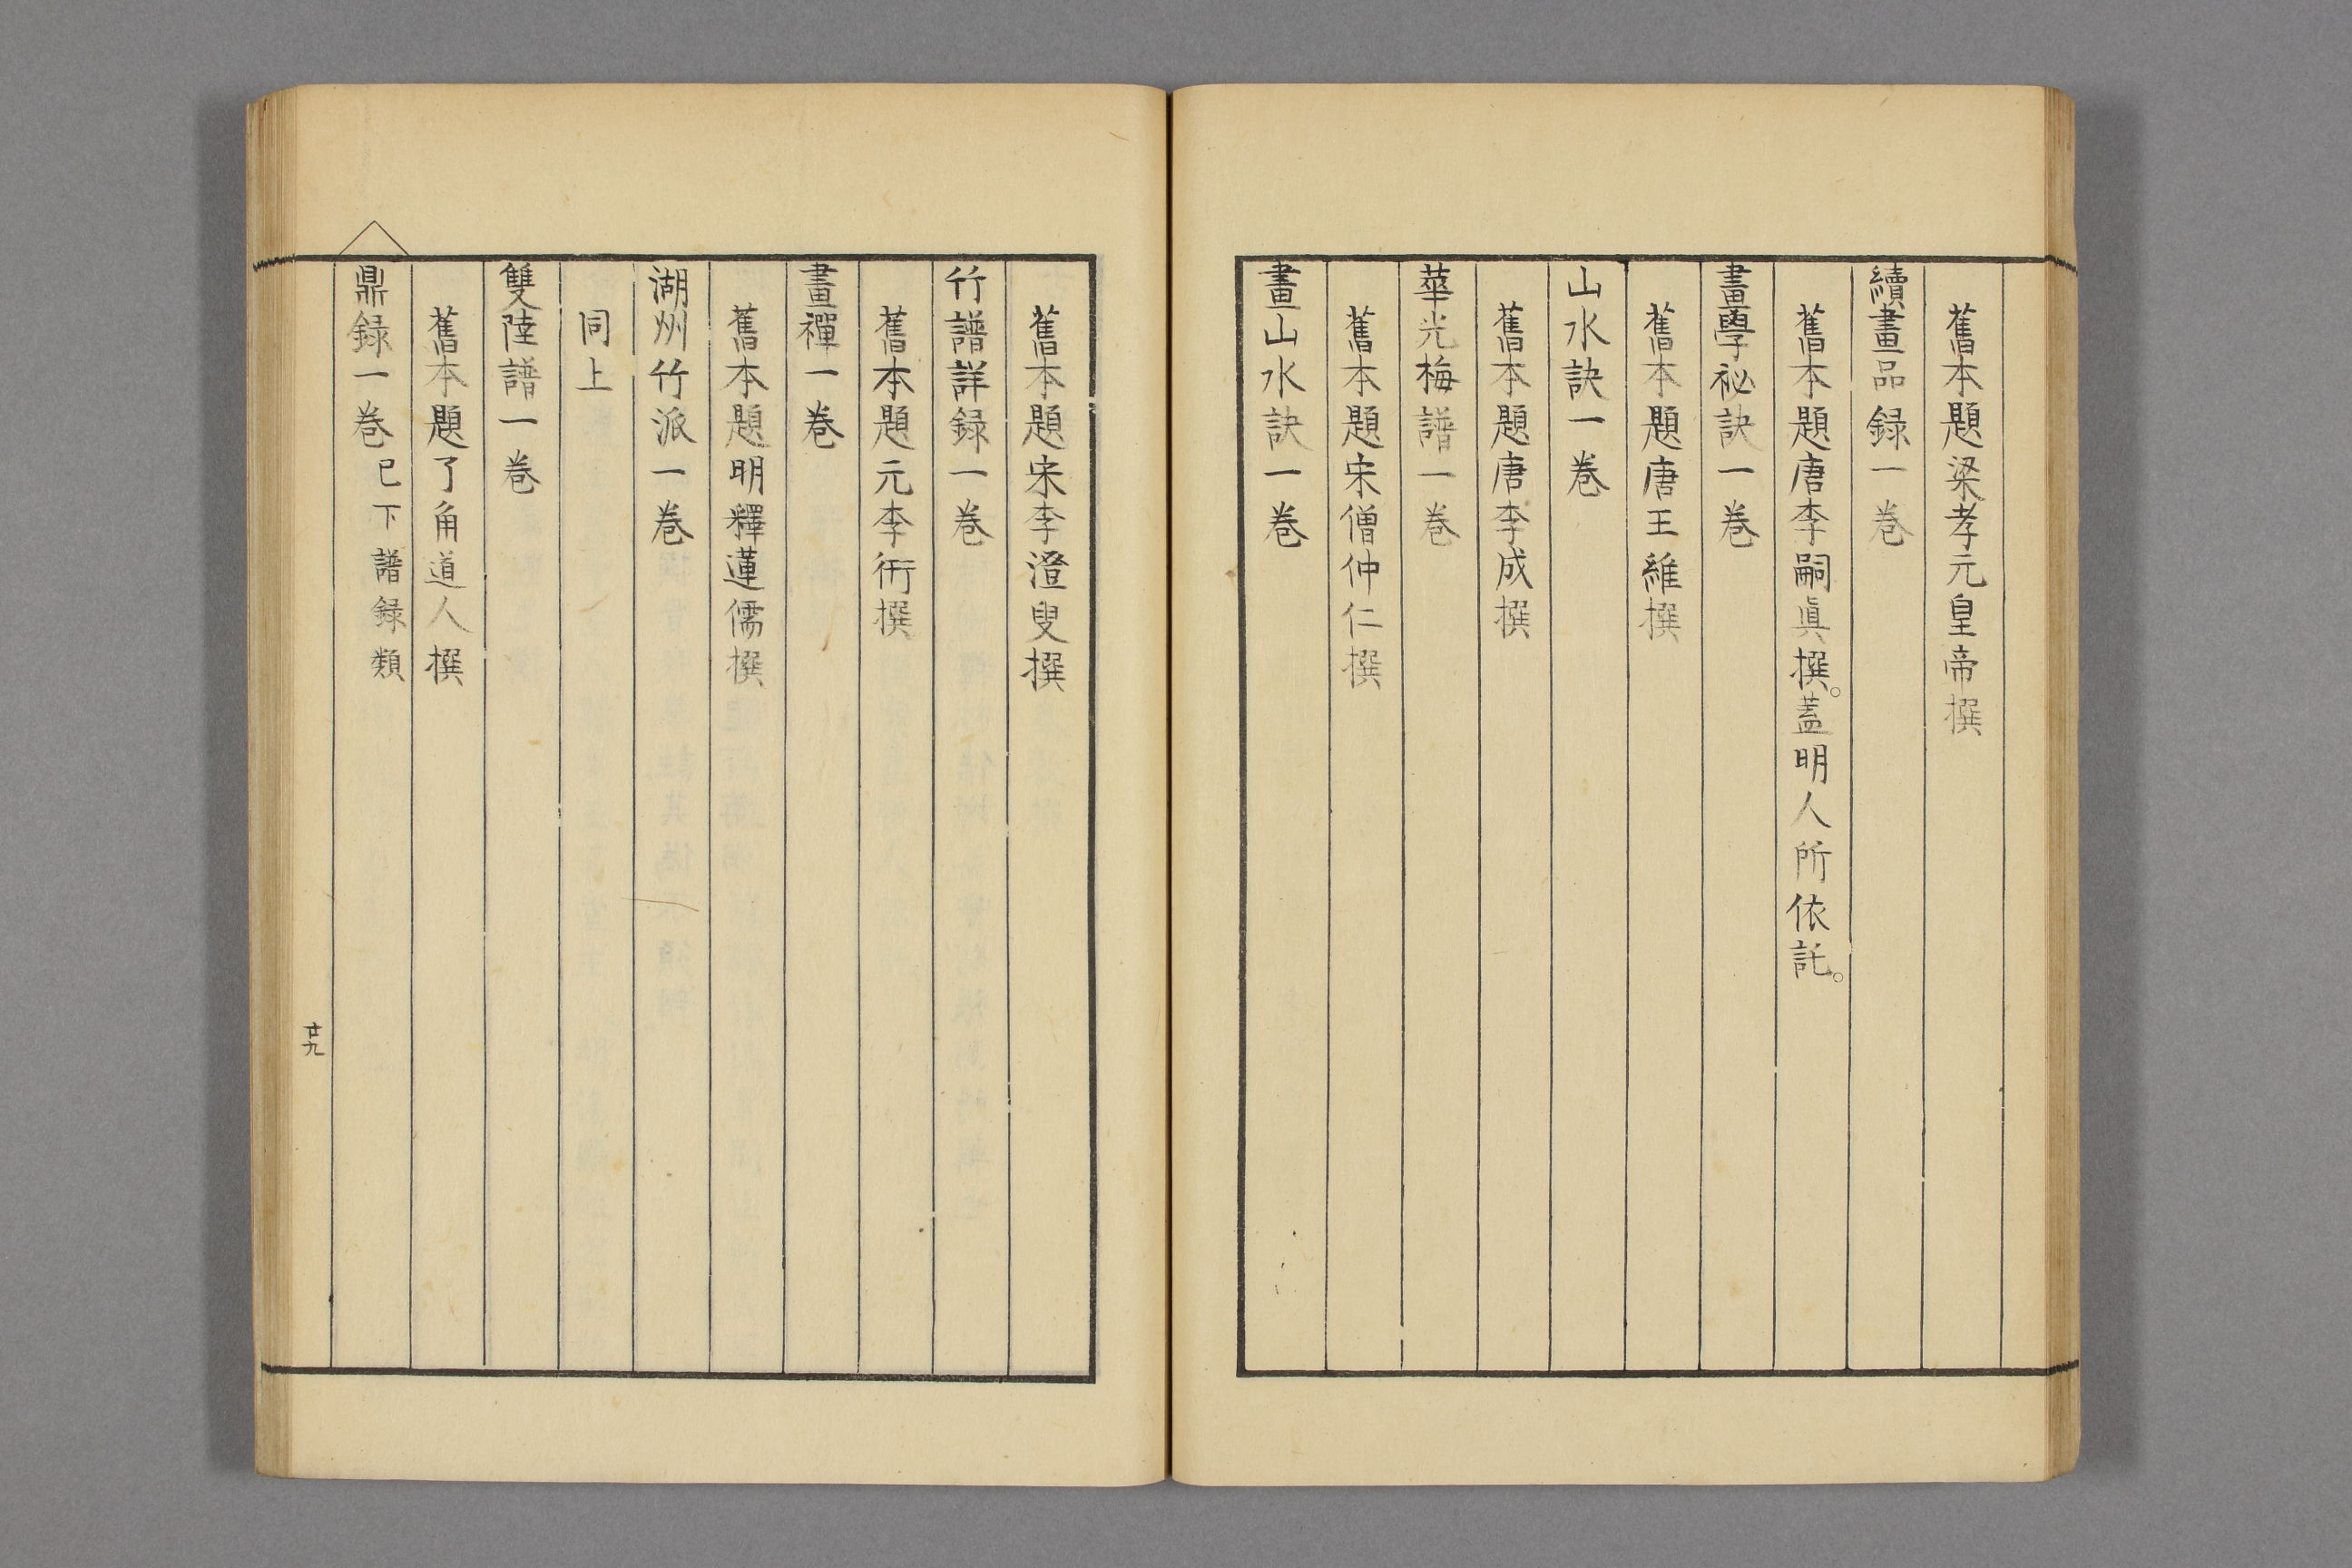 舊本題梁孝元皇帝撰
續畫品録一巻
舊本題唐李嗣眞撰。蓋明人所依託。
畫學祕訣一巻
舊本題唐王維撰
山水訣一巻
舊本題唐李成撰
華光梅譜一巻
舊本題宋僧仲仁撰
畫山水訣一巻
舊本題宋李澄叟撰
竹譜詳録一巻
舊本題元李衎撰
畫禪一巻
舊本題明釋蓮儒撰
湖州竹派一巻
同上
雙陸譜一巻
舊本題了角道人撰
鼎録一巻 已下譜録類
廿九